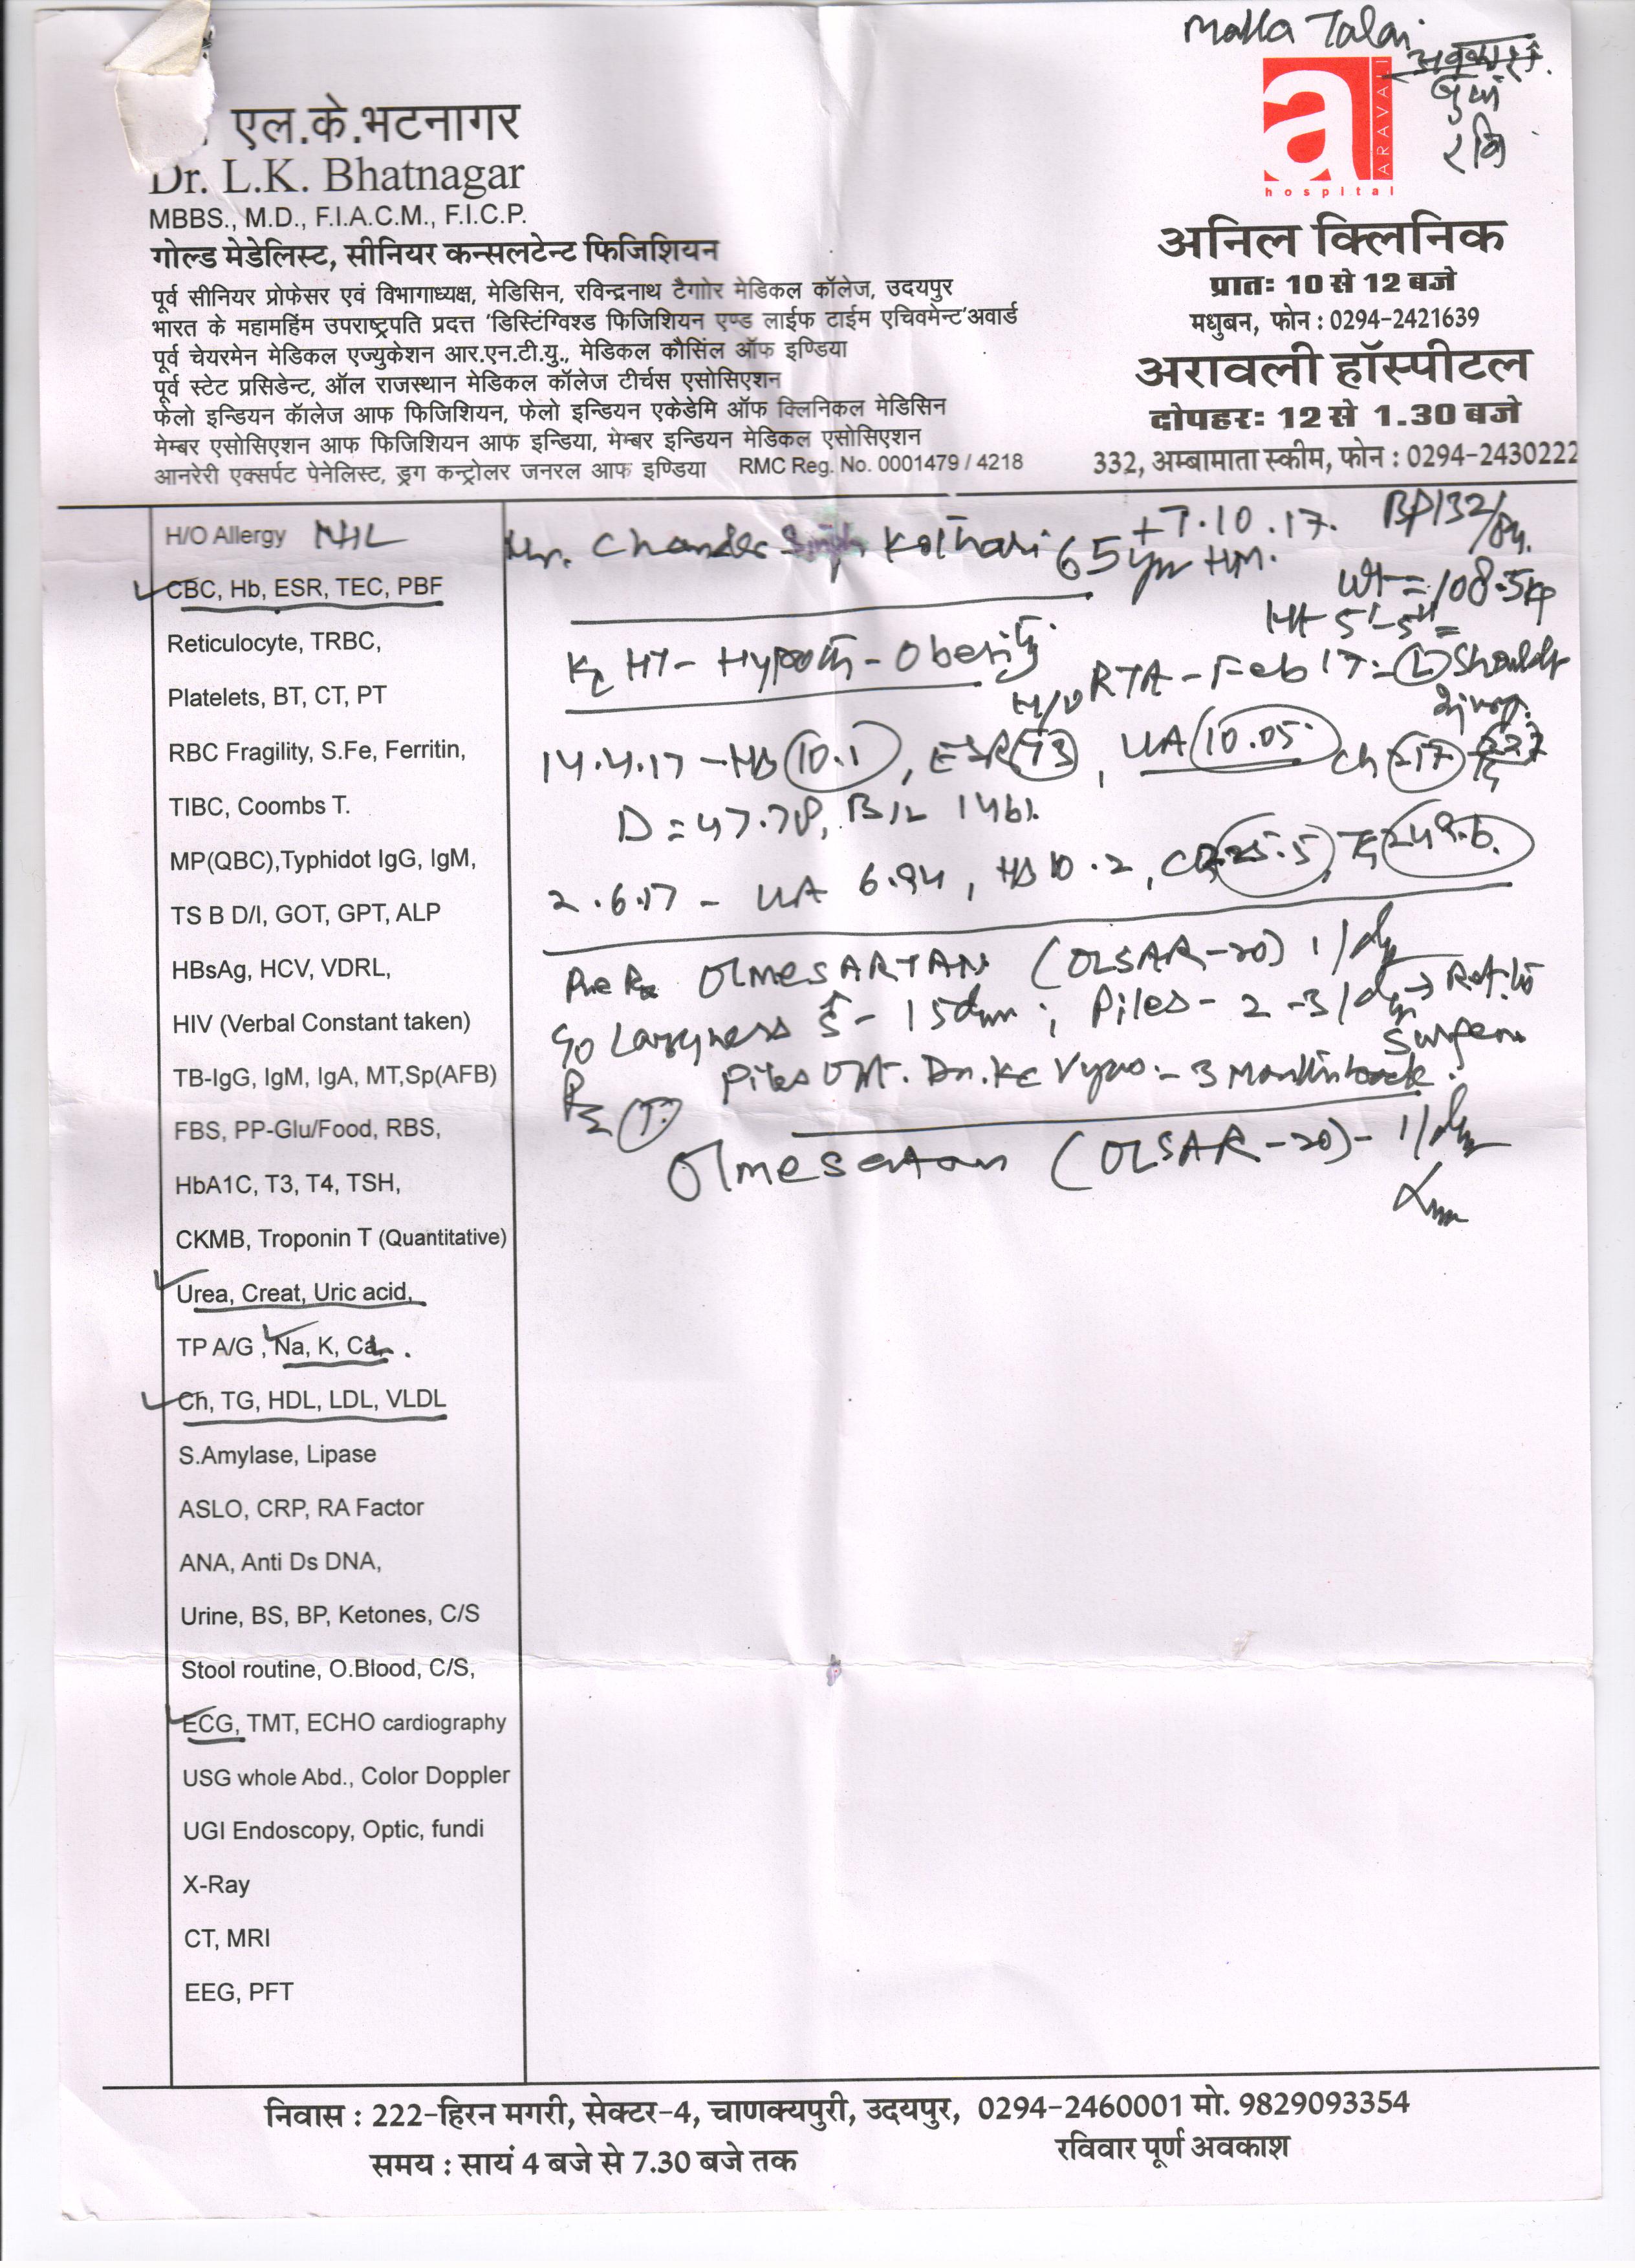 Malla Talai
एल.के.भटनागर
Dr. L.K. Bhatnagar
MBBS., M.D., F.I.A.C.M., F.I.C.P.
गोल्ड मेडेलिस्ट, सीनियर कन्सलटेन्ट फिजिशियन
पूर्व सीनियर प्रोफेसर एवं विभागाध्यक्ष, मेडिसिन, रविन्द्रनाथ टैगाोर मेडिकल कॉलेज, उदयपुर
भारत के महामहिंम उपराष्ट्रपति प्रदत्त 'डिस्टिंग्विश्ड फिजिशियन एण्ड लाईफ टाईम एचिवमेन्ट'अवार्ड
पूर्व चेयरमेन मेडिकल एज्युकेशन आर.एन.टी.यु., मेडिकल कौसिंल ऑफ इण्डिया
पूर्व स्टेट प्रसिडेन्ट, ऑल राजस्थान मेडिकल कॉलेज टीर्चस एसोसिएशन
फेलो इन्डियन कॅालेज आफ फिजिशियन, फेलो इन्डियन एकेडेमि ऑफ क्लिनिकल मेडिसिन
मेम्बर एसोसिएशन आफ फिजिशियन आफ इन्डिया, मेम्बर इन्डियन मेडिकल एसोसिएशन
आनरेरी एक्सर्पट पेनेलिस्ट, ड्रग कन्ट्रोलर जनरल आफ इण्डिया RMC Reg. No. 0001479 / 4218
a ARAVALI
hospital
रवि
अनिल क्लिनिक
प्रातः 10 से 12 बजे
मधुबन, फोन : 0294-2421639
अरावली हॉस्पीटल
दोपहरः 12 से 1.30 बजे
332, अम्बामाता स्कीम, फोन : 0294-2430222
H/O Allergy NIL
CBC, Hb, ESR, TEC, PBF
Reticulocyte, TRBC,
Platelets, BT, CT, PT
RBC Fragility, S.Fe, Ferritin,
TIBC, Coombs T.
MP(QBC),Typhidot IgG, IgM,
TS B D/I, GOT, GPT, ALP
HBsAg, HCV, VDRL,
HIV (Verbal Constant taken)
TB-IgG, IgM, IgA, MT,Sp(AFB)
FBS, PP-Glu/Food, RBS,
HbA1C, T3, T4, TSH,
CKMB, Troponin T (Quantitative)
Urea, Creat, Uric acid,
TP A/G , Na, K, Ca,
Ch, TG, HDL, LDL, VLDL
S.Amylase, Lipase
ASLO, CRP, RA Factor
ANA, Anti Ds DNA,
Urine, BS, BP, Ketones, C/S
Stool routine, O.Blood, C/S,
ECG, TMT, ECHO cardiography
USG whole Abd., Color Doppler
UGI Endoscopy, Optic, fundi
X-Ray
CT, MRI
EEG, PFT
7.10.17. BP132/
Mr. Chander Singh Kothari 65yr HM.
Wt=108.5kg
Ht 5'-5"
HT - Hypoth - Obesity
H/O RTA - Feb 17 - (L) Shoulder
14.4.17 - Hb 10.1, ESR 73, UA 10.05 Ch 217
D = 47.78, B12 1461
2.6.17 - UA 6.94, Hb 10.2, 249.6
Pre Rx OlmesARTAN (OLSAR-20) 1/day
Lazyness - 15days; Piles - 2-3/day → Ref. to
Surgeon
Piles Dr. Vyas - 3 Months back.
Rx (T)
Olmesartan (OLSAR-20) - 1/day
निवास : 222-हिरन मगरी, सेक्टर-4, चाणक्यपुरी, उदयपुर, 0294-2460001 मो. 9829093354
समय : सायं 4 बजे से 7.30 बजे तक
रविवार पूर्ण अवकाश